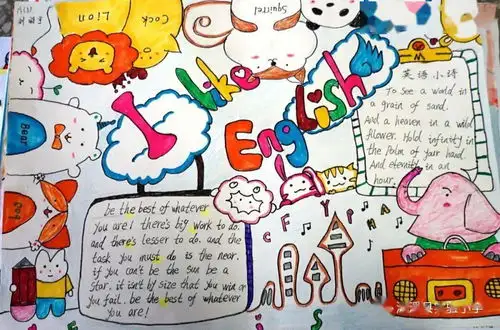 Lion
Cock
Squirrel
Bear
I like
English
英语小诗
To see a world in
a grain of sand.
And a heaven in a wild
flower. Hold infinity in
the Palm of your hand.
And eternity in an
hour.
be the best of whatever
you are! there's big work to do.
and there's lesser to do. and the
task you must do is the near.
if you can't be the sun be a
star. it isn't by size that you win or
you fail. be the best of whatever
you are!
C F Y P H A
G S